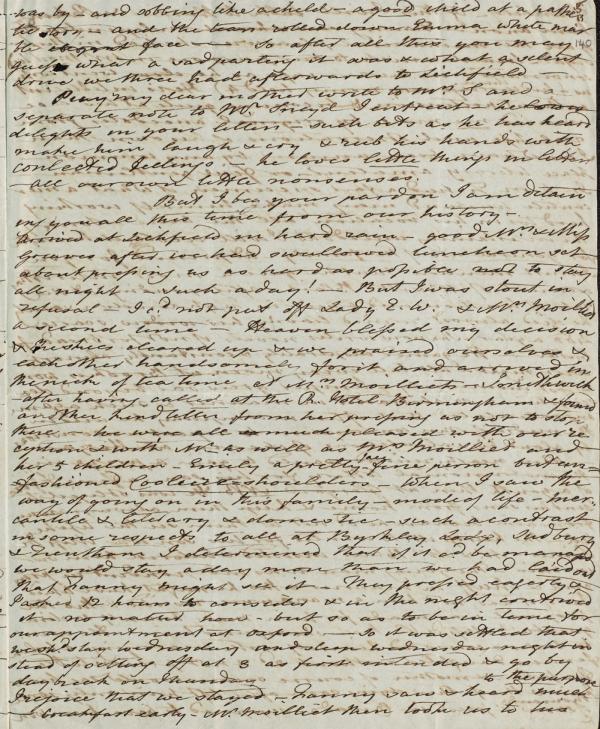 was by – and sobbing like a child – a good child at a pathe-
tic story – and the tears rolled down Emma white mar
ble face — So after all this you may 140
guess what a sad parting it was & what a silent
drive we three had afterwards to Lichfield –
Pray my dear mother write to Mrs S and a
separate note to Mr. I entreat – he
delights in your letters – such bits as he has heard
make him laugh & cry & rub his hands with
collected feelings – he loves little things in
– all our own little nonsenses.
But I beg your pardon I am detain
ing you all this time from our history –
Arrived at Lichfield in hard rain – good Mrs & Miss
Greaves after we had swallowed luncheon set
about pressing us as hard as possible not to stay
all night – such a day! – But I was stout in
refusal – I cd. not put off Lady E. W. & Mrs Moilliet
a second time – Heaven blessed my decision
& the skies cleared up & we praised ourselves &
each other handsomely for it and arrived in
the nick of tea time at Mrs Moilliets – Smethwick
after having called at the R. Hotel Birmingham & found
another kind letter from her pressing us not to stop
there – we were all much pleased with our re
ception & with Mr. as well as Mrs Moilliet and
her 5 children – Emily a pretty face fine person but un-
fashioned shoulders – When I saw the
way of going on in this family – mode of life – mer-
cantile & literary & domestic – such a contrast
in some respects to all at Byrkley Lodge, Sudbury
& Trentham I determined that if it cd be managed
we would stay a day more than we had laid out
that Fanny might see it – They pressed eagerly &
I asked 12 hours to consider & in the night contrived
it – no matter how – but so as to be in time for
our appointment at Oxford – so it was settled that
we shd stay Wednesday and sleep Wednesday night in
stead of setting off at 3 as first intended & go by
daybreak on Thursday. to the purpose
I rejoice that we stayed – Fanny saw & heard much
– breakfast early – Mr. Moilliet then took us to his